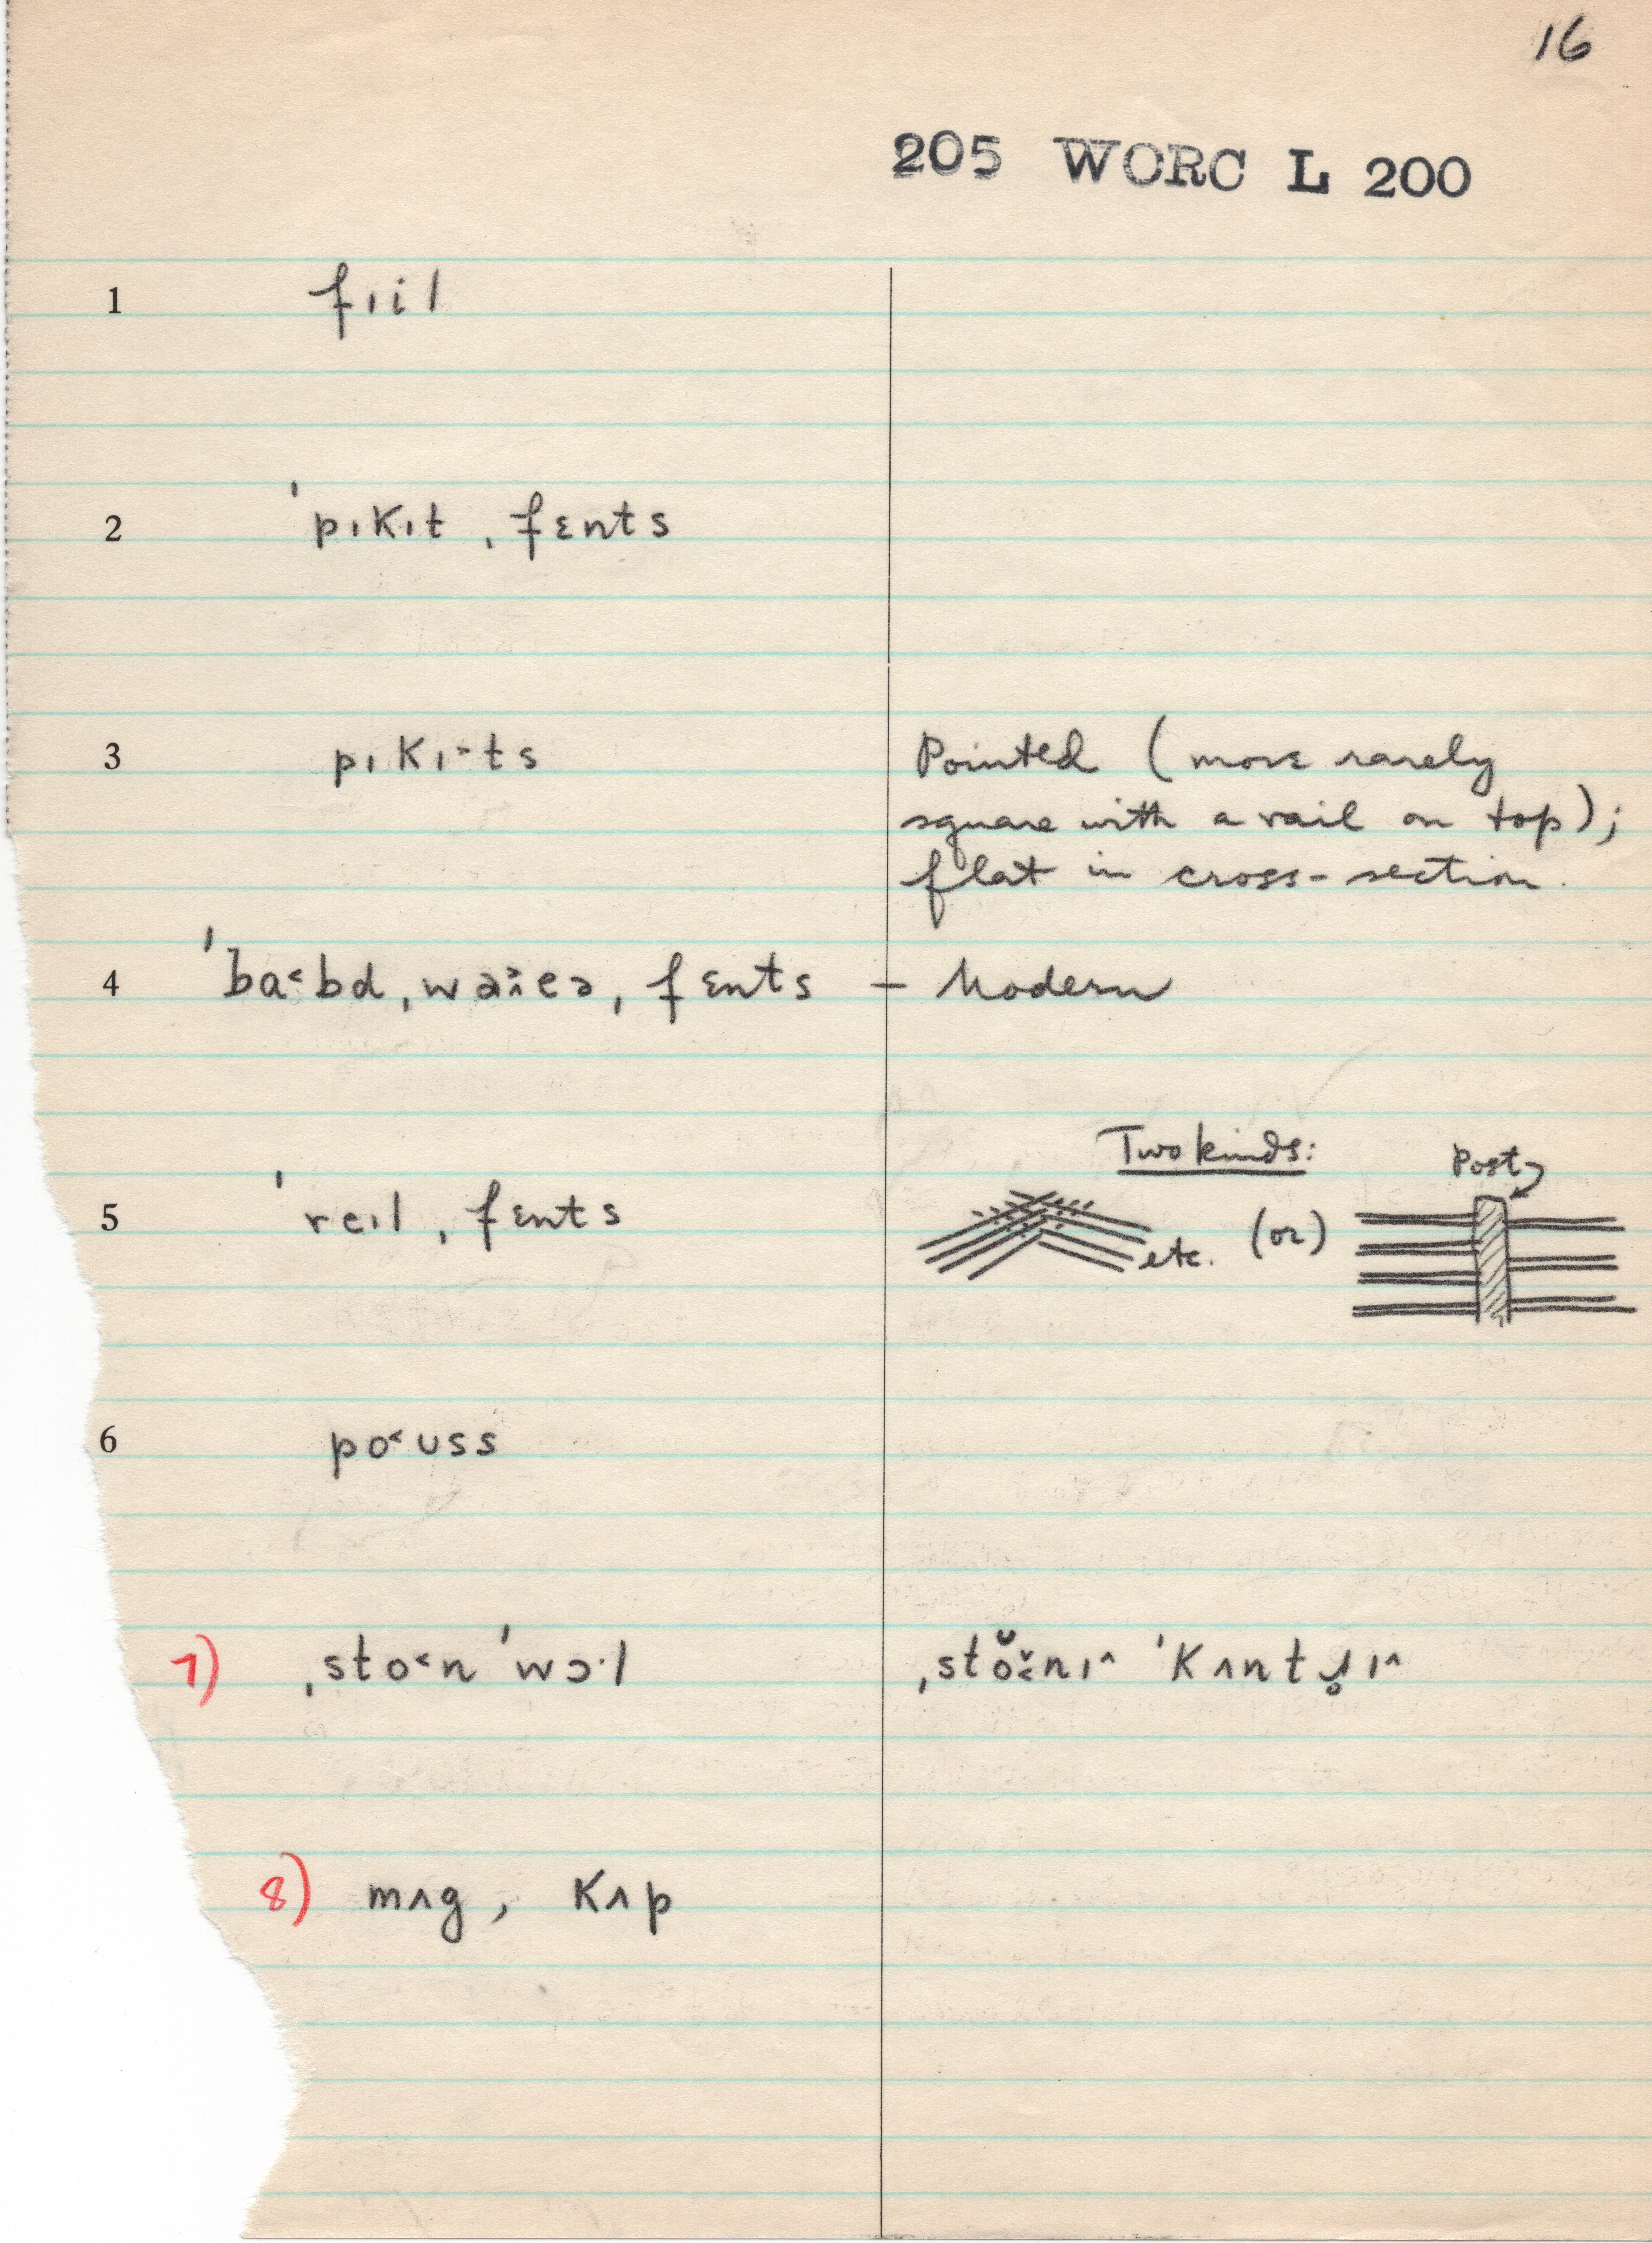 16
205 WORC L 200
1 fɪil
2 ˈpɪkɪt ˌfɛnts
3 pɪkɪ˃ts
Pointed (more rarely
square with a rail on top);
flat in cross-section.
4 ˈba˂bd ˌfɛnts – Modern
Two kinds:
Post
5 ˈreɪl ˌfɛnts
etc. (or)
6 po˂ʊss
7) ˌsto˂n ˈwɔ·l
8) mʌg, kʌp